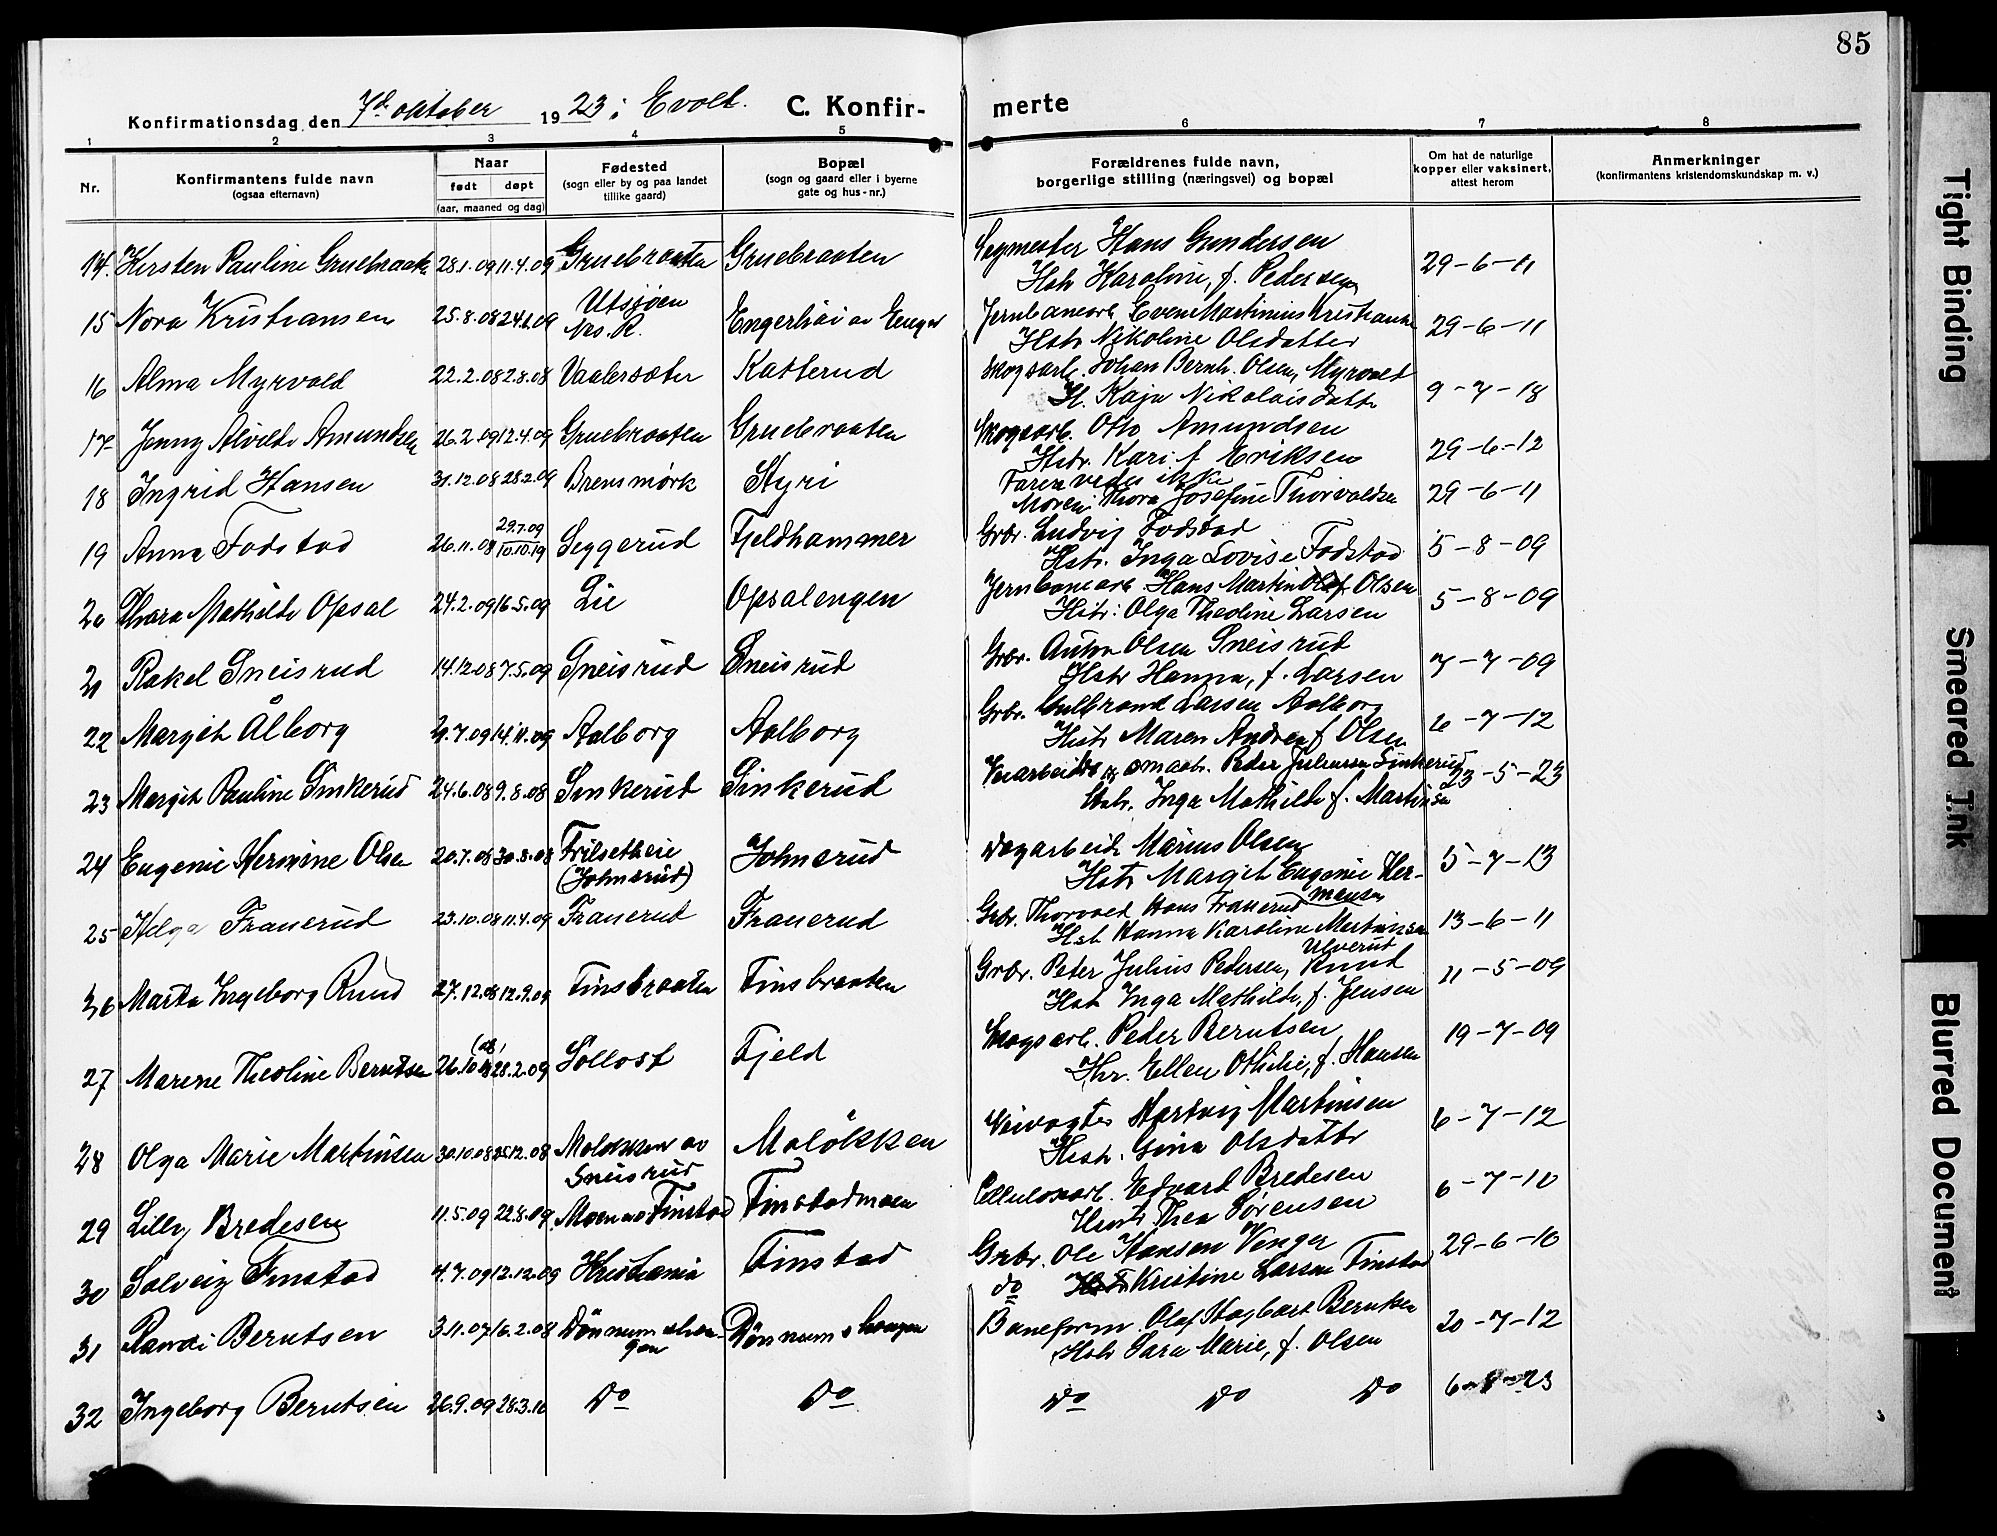 85
Konfirmationsdag den 7de oktober 1923 i Evolt. C. Konfirmerte
1 2 3 4 5 6 7 8
Nr.
Konfirmantens fulde navn
(ogsaa efternavn)
Naar
født døpt
(aar, maaned og dag)
Fødested
(sogn eller by og paa landet
tillike gaard)
Bopæl
(sogn og gaard eller i byerne
gate og hus-nr.)
Forældrenes fulde navn,
borgerlige stilling (næringsvei) og bopæl
Om hat de naturlige
kopper eller vaksinert,
attest herom
Anmerkninger
(konfirmantens kristendomskundskap m. v.)
14. Kirsten Pauline Gruebraaten 28.1.09 11.4.09 Gruebraaten Gruebraaten Sagmester Hans Gundersen 29-6-11
Hstr Karoline, f. Pedersen
15 Nora Kristiansen 25.8.08 24.1.09 Utsjøen Nrs. R. Engerhøi av Enger Jernbanearb. Even Martinius Kristiansen 29-6-11
Hstr Nikoline Olsdatter
16 Alma Myrvold 22.2.08 2.8.08 Vaalersæter Katterud Skogsarb. Johan Bernh. Olsen, Myrvold 9-7-18
H. Kaja Nikolaisdatter
17 Jenny Alvilde Amundsen 26.2.09 12.4.09 Gruebraaten Gruebraaten Skogsarb. Otto Amundsen 29-6-12
Hstr. Kari f Eriksen
18 Ingrid Hansen 31.12.08 28.2.09 Brensmørk Styri Faren vedes ikke 29-6-11
Moren: Thora Josefine Thorvaldsen
19 Anna Fodstad 26.11.08 29.7.09 10.10.19 Seggerud Fjeldhammer Grbr. Ludvig Fodstad 5-8-09
Hstr. Inga Lovise Fodstad
20 Thora Mathilde Opsal 24.2.09 16.5.09 Lie Opsalengen Jernbanearb. Hans Martin Olsen 5-8-09
Hstr: Olga Theoline Larsen
21 Rakel Sneisrud 14.12.08 7.5.09 Sneisrud Sneisrud Grbr. Anton Olsen Sneisrud 7-7-09
Hstr Hanna, f. Larsen
22 Margit Ålborg 21.7.09 14.11.09 Aalborg Aalborg Grbr. Gulbrand Larsen Aalborg 6-7-12
Hstr Maren Andrea f Olsen
23 Margit Pauline Sinkerud 24.6.08 9.8.08 Sinkerud Sinkerud Veiarbeider og smaabr. Peder Juliussen Sinkerud 23-5-23
Hstr. Inga Mathilde f. Martinsen
24 Eugenie Hermine Olsen 20.7.08 30.8.08 Frilsetheie (Johnsrud) Johnsrud Dagarbeid. Marius Olsen 5-7-13
Hstr Margit Eugenie Hermansen
25 Helga Frauerud 23.10.08 11.4.09 Frauerud Frauerud Grbr. Thorvald Hans Frauerud 13-6-11
Hstr Hanna Karoline Martinsen
26 Marta Ingeborg Ruud 27.12.08 12.9.09 Finsbraaten Finsbraaten Grbr. Peter Julius Pedersen, Ulverud Ruud 11-5-09
Hstr Inga Mathilde, f. Jensen
27 Marene Theoline Berntsen 26.10.08 28.2.09 Sollost Fjeld Skogsarb. Peder Berntsen 19-7-09
Hr. Ellen Othilie, f. Hansen
28 Olga Marie Martinsen 30.10.08 25.12.08 Moløkken av Sneisrud Moløkken Veivogter Hartvig Martinsen 6-7-12
Hstr. Gina Olsdatter
29 Lilly Bredesen 11.5.09 22.8.09 Moen av Finstad Finstadmoen Cellulosearb. Edvard Bredesen 6-7-10
Hustr. Thea Sørensen
30 Solveig Finstad 4.7.09 12.12.09 Kristiania Finstad Grbr. Ole Hansen Venger 29-6-10
do Kristine Larsen Finstad
31 Randi Berntsen 3.11.07 16.2.08 Dønnumshaugen Dønnumshaugen Baneform. Olaf Hagbart Berntsen 20-7-12
Hstr Sara Marie, f. Olsen
32 Ingeborg Berntsen 26.9.09 28.3.10 Do Do Do Do Do 6-8-23
Tight Binding
Smeared Ink
Blurred Document